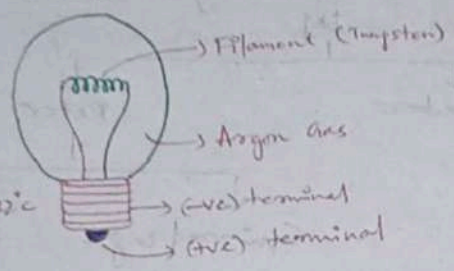 Filament (Tungsten)
Argon Gas
(-ve) terminal
(+ve) terminal